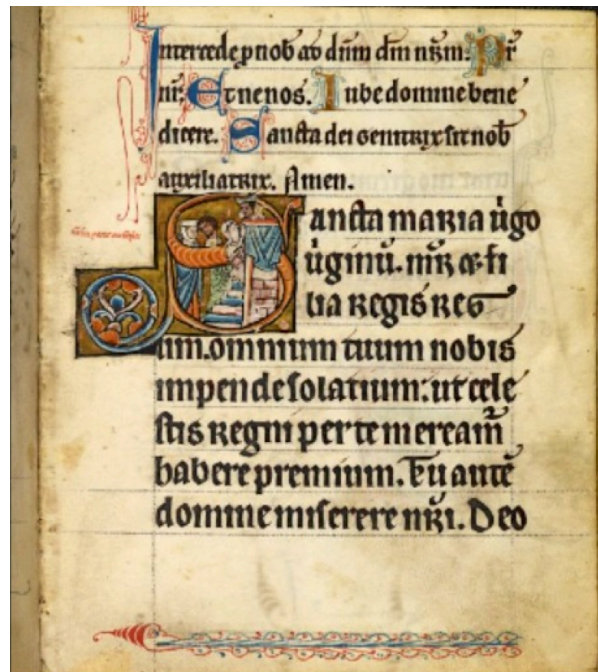 Intercede p nob ad dūm dm nr̄m: Pr̄
nr̄: Et ne nos. Iube domne bene
dicere. Sancta dei genitrix sit nob
auxiliatrix. Amen.
Sancta maria ūgo
ūginū. mr̄ et fi
lia regis reg
um. omnium tuum nobis
impende solatium: ut cele
stis regni per te meream̄
habere premium. Tu autē
domine miserere nr̄i. Deo